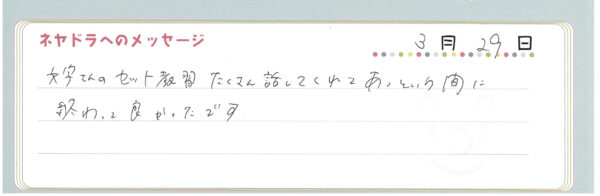 ネヤドラへのメッセージ 3月29日
さんのセット教習 たくさん話してくれてあっという間に
終わって良かったです